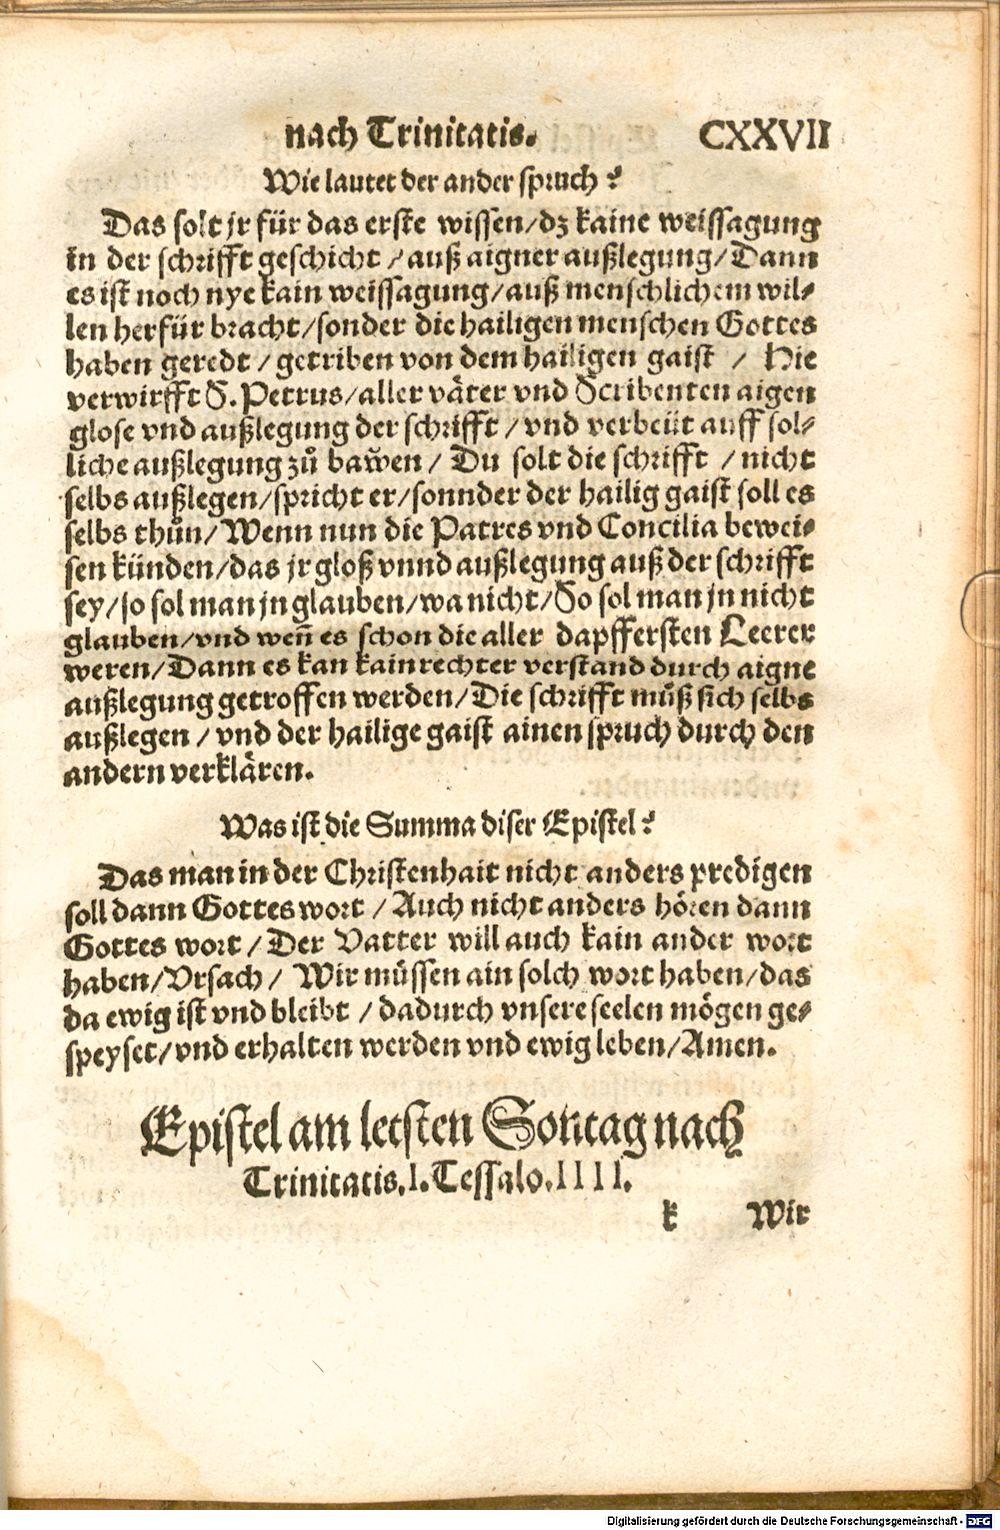 nach Trinitatis. CXXVII
Wie lautet der ander spruch?
Das solt jr für das erste wissen/dz kaine weissagung
in der schrifft geschicht / auß aigner außlegung/Dann
es ist noch nye kain weissagung/auß menschlichem wil⸗
len herfür bracht/sonder die hailigen menschen Gottes
haben geredt / getriben von dem hailigen gaist / Hie
verwirfft S. Petrus/aller väter vnd Scribenten aigen
glose vnd außlegung der schrifft / vnd verbeüt auff sol⸗
liche außlegung zů bawen / Du solt die schrifft / nicht
selbs außlegen/spricht er/sonnder der hailig gaist soll es
selbs thůn/Wenn nun die Patres vnd Concilia bewei⸗
sen künden/das jr gloß vnnd außlegung auß der schrifft
sey/so sol man jn glauben/wa nicht/So sol man jn nicht
glauben/vnd weñ es schon die aller dapffersten Leerer
weren/Dann es kan kain rechter verstand durch aigne
außlegung getroffen werden/Die schrifft můß sich selbs
außlegen / vnd der hailige gaist ainen spruch durch den
andern verklären.
Was ist die Summa diser Epistel?
Das man in der Christenhait nicht anders predigen
soll dann Gottes wort / Auch nicht anders hören dann
Gottes wort / Der Vatter will auch kain ander wort
haben/Vrsach / Wir müssen ain solch wort haben/das
da ewig ist vnd bleibt / dadurch vnsere seelen mögen ge⸗
speyset/vnd erhalten werden vnd ewig leben/Amen.
Epistel am letsten Sontag nach
Trinitatis. I. Tessalo. IIII.
k Wir
Digitalisierung gefördert durch die Deutsche Forschungsgemeinschaft - DFG